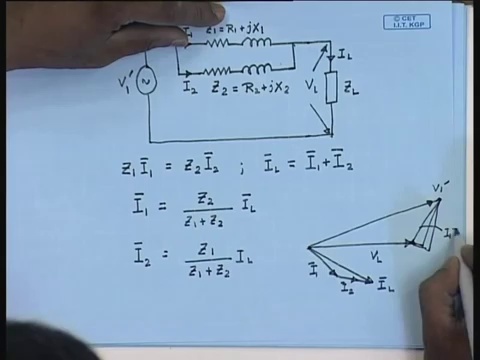 © CET
I.I.T. KGP
I₁ Z₁ = R₁+jX₁
I_L
V₁′
I₂ Z₂ = R₂+jX₂
V_L Z_L
Z₁ I̅₁ = Z₂ I̅₂ ; I̅_L = I̅₁ + I̅₂
I̅₁ = Z₂ / (Z₁+Z₂) I̅_L
I̅₂ = Z₁ / (Z₁+Z₂) I_L
V₁′
V_L
I̅₁
I₂
I̅_L